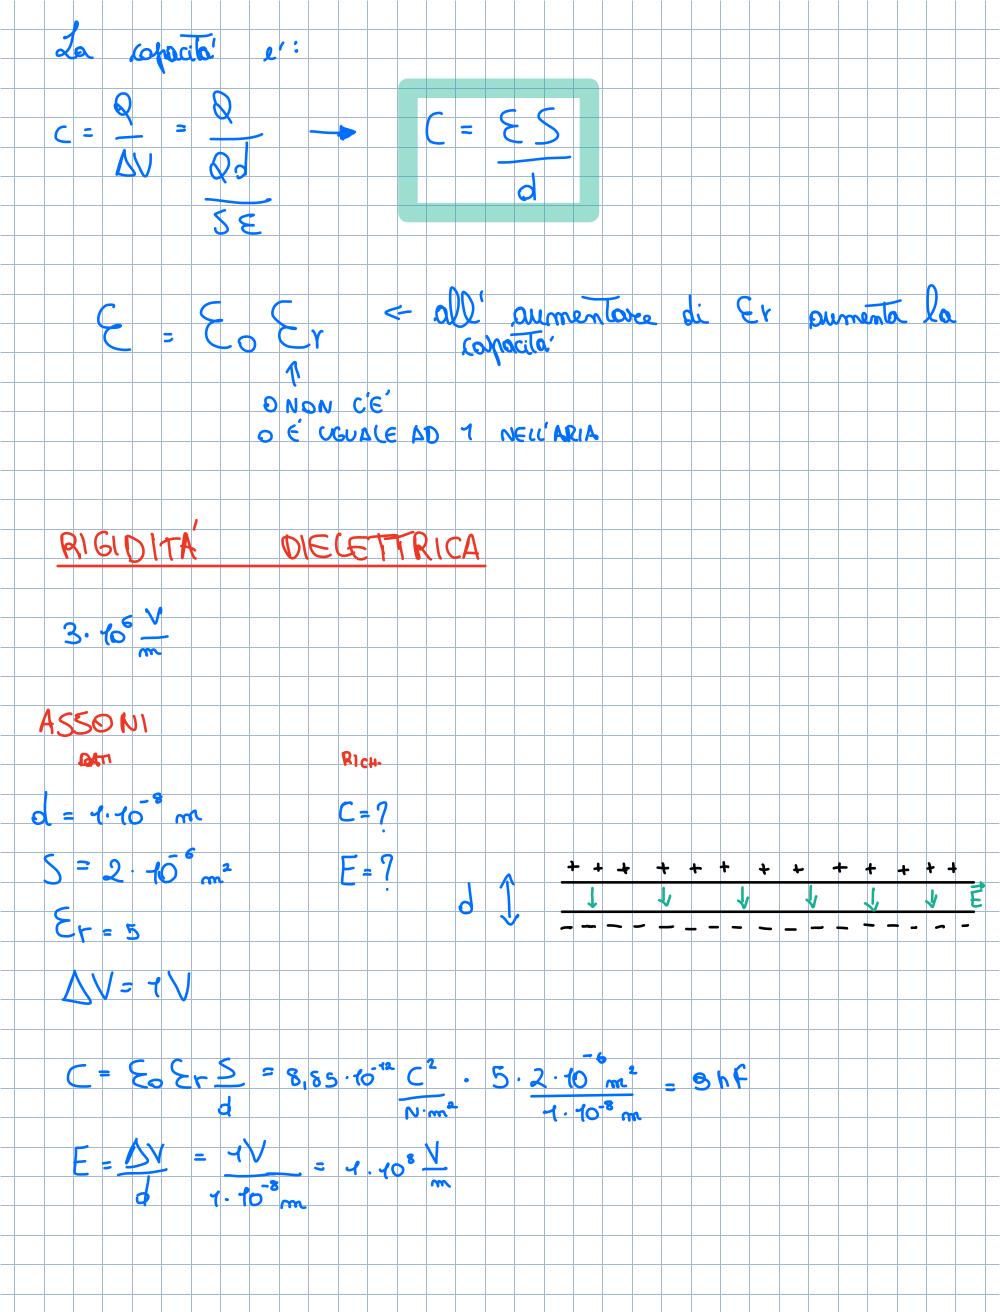 La capacità è:
C = Q/ΔV = Q/(Qd/(Sε)) → C = εS/d
ε = ε₀ εr ← all'aumentare di εr aumenta la capacità
↑
O NON C'È
O È UGUALE AD 1 NELL'ARIA
RIGIDITÀ DIELETTRICA
3·10⁶ V/m
ASSONI
DATI RICH.
d = 1·10⁻⁸ m C = ?
S = 2·10⁻⁶ m² E = ?
εr = 5
ΔV = 1V
+ + + + + + + + + + + + +
d E⃗
- - - - - - - - - - - - - - -
C = ε₀ εr S/d = 8,85·10⁻¹² C²/(N·m²) · 5·2·10⁻⁶ m²/(1·10⁻⁸ m) = 9nF
E = ΔV/d = 1V/(1·10⁻⁸ m) = 1·10⁸ V/m